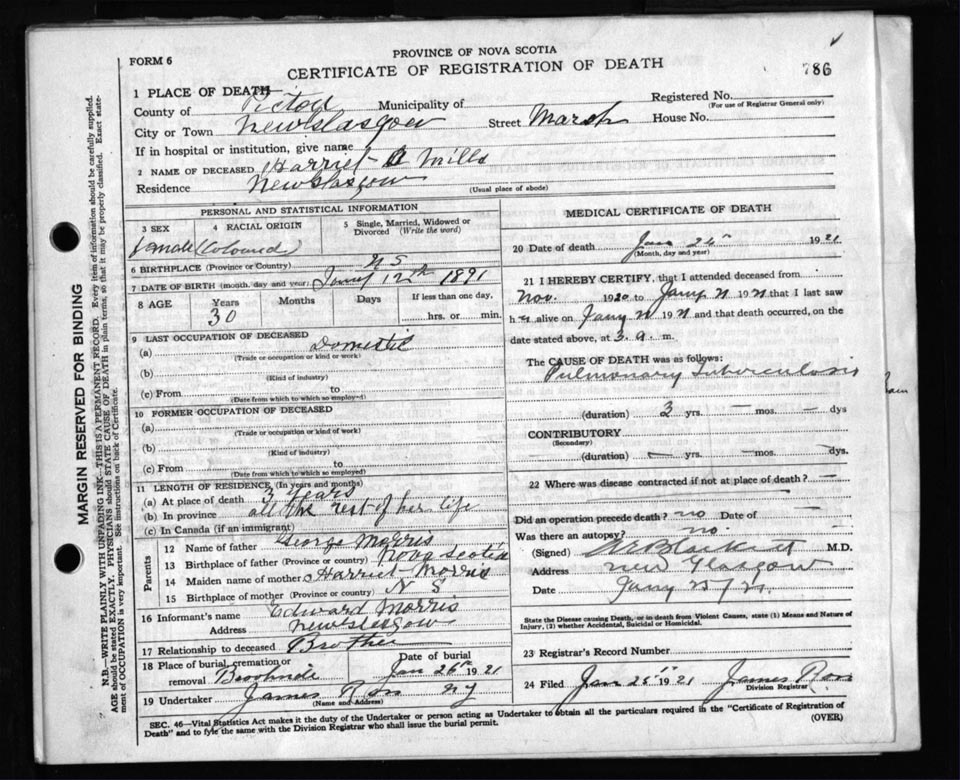 PROVINCE OF NOVA SCOTIA
FORM 6
CERTIFICATE OF REGISTRATION OF DEATH
786
1 PLACE OF DEATH
County of Pictou Municipality of Registered No.
(For use of Registrar General only)
City or Town New Glasgow Street Marsh House No.
If in hospital or institution, give name
2 NAME OF DECEASED Harriet A Mills
Residence New Glasgow (Usual place of abode)
PERSONAL AND STATISTICAL INFORMATION
3 SEX 4 RACIAL ORIGIN 5 Single, Married, Widowed or Divorced (Write the word)
female (Coloured)
6 BIRTHPLACE (Province or Country) N S
7 DATE OF BIRTH (month, day and year) Jany 12th 1891
8 AGE Years Months Days If less than one day,
30 hrs. or min.
9 LAST OCCUPATION OF DECEASED
(a) Domestic
(Trade or occupation or kind or work)
(b)
(Kind of industry)
(c) From to
(Date from which to which employed)
10 FORMER OCCUPATION OF DECEASED
(a)
(Trade or occupation or kind of work)
(b)
(Kind of industry)
(c) From to
(Date from which to which so employed)
11 LENGTH OF RESIDENCE (In years and months)
(a) At place of death 3 years
(b) In province all the rest of her life
(c) In Canada (if an immigrant)
Parents
12 Name of father George Morris
13 Birthplace of father (Province or Country) Nova Scotia
14 Maiden name of mother Harriet Morris
15 Birthplace of mother (Province or Country) N S
16 Informant's name Edward Morris
Address New Glasgow
17 Relationship to deceased Brother
18 Place of burial, cremation or removal Date of burial
Jan 26th 1921
19 Undertaker James Ross N G
(Name and Address)
MEDICAL CERTIFICATE OF DEATH
20 Date of death Jan 24th 1921
(Month, day and year)
21 I HEREBY CERTIFY, that I attended deceased from
Nov. 1920 to Jany 1921 that I last saw
h alive on Jany 1921 and that death occurred, on the
date stated above, at 3 a. m.
The CAUSE OF DEATH was as follows:
Pulmonary Tuberculosis
(duration) 3 yrs. — mos. — dys
CONTRIBUTORY —
(Secondary)
(duration) — yrs. — mos. — dys.
22 Where was disease contracted if not at place of death? —
Did an operation precede death? no Date of —
Was there an autopsy? no.
(Signed) M.D.
Address New Glasgow
Date Jany
State the Disease causing Death, or in death from Violent Causes, state (1) Means and Nature of Injury, (2) whether Accidental, Suicidal or Homicidal.
23 Registrar's Record Number
24 Filed Jan 1921 James Ross
Division Registrar
SEC. 46—Vital Statistics Act makes it the duty of the Undertaker or person acting as Undertaker to obtain all the particulars required in the "Certificate of Registration of Death" and to fyle the same with the Division Registrar who shall issue the burial permit.
(OVER)
MARGIN RESERVED FOR BINDING
N.B.—WRITE PLAINLY WITH UNFADING INK—THIS IS A PERMANENT RECORD. Every item of information should be carefully supplied.
AGE should be stated EXACTLY. PHYSICIANS should STATE CAUSE OF DEATH in plain terms, so that it may be properly classified. Exact statement of OCCUPATION is very important. See instructions on back of Certificate.